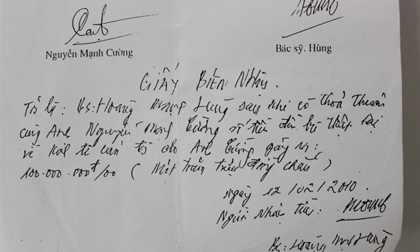 Nguyễn Mạnh Cường Bác sỹ. Hùng
GIẤY BIÊN NHẬN
Tôi là: Bs: Hoàng Mạnh Hùng sau khi có thoả thuận
cùng Anh Nguyễn Mạnh Cường số tiền đền bù thiệt hại
về kinh tế cho Anh Cường là:
100.000.000đ00 ( Một trăm triệu đồng chẵn )
Ngày 12/02/2010.
Người Nhận Tiền:
Bs: Hoàng Mạnh Hùng